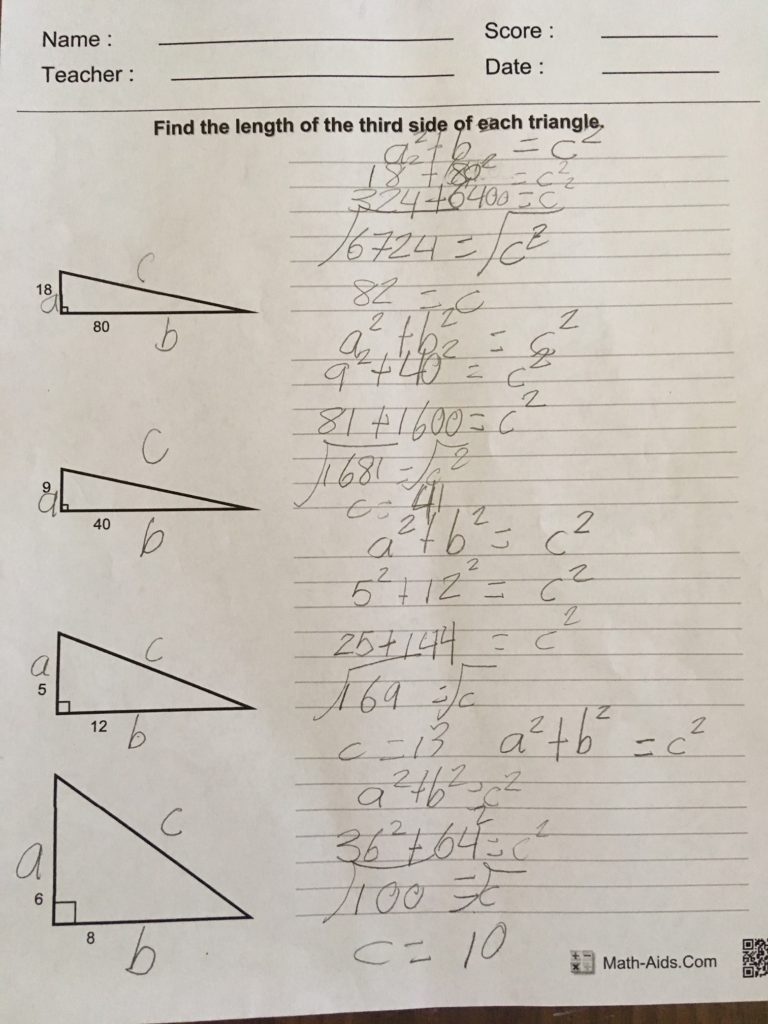 Name :
Score :
Teacher :
Date :
Find the length of the third side of each triangle.
a² + b² = c²
18² + 80² = c²
324 + 6400 = c²
√6724 = √c²
82 = c
18
a
80
b
c
a² + b² = c²
9² + 40² = c²
81 + 1600 = c²
√1681 = √c²
c = 41
9
a
40
b
c
a² + b² = c²
5² + 12² = c²
25 + 144 = c²
√169 = √c
c = 13
a² + b² = c²
a
5
12
b
c
a² + b² = c²
36² + 64² = c²
√100 = √c
c = 10
a
6
8
b
c
Math-Aids.Com